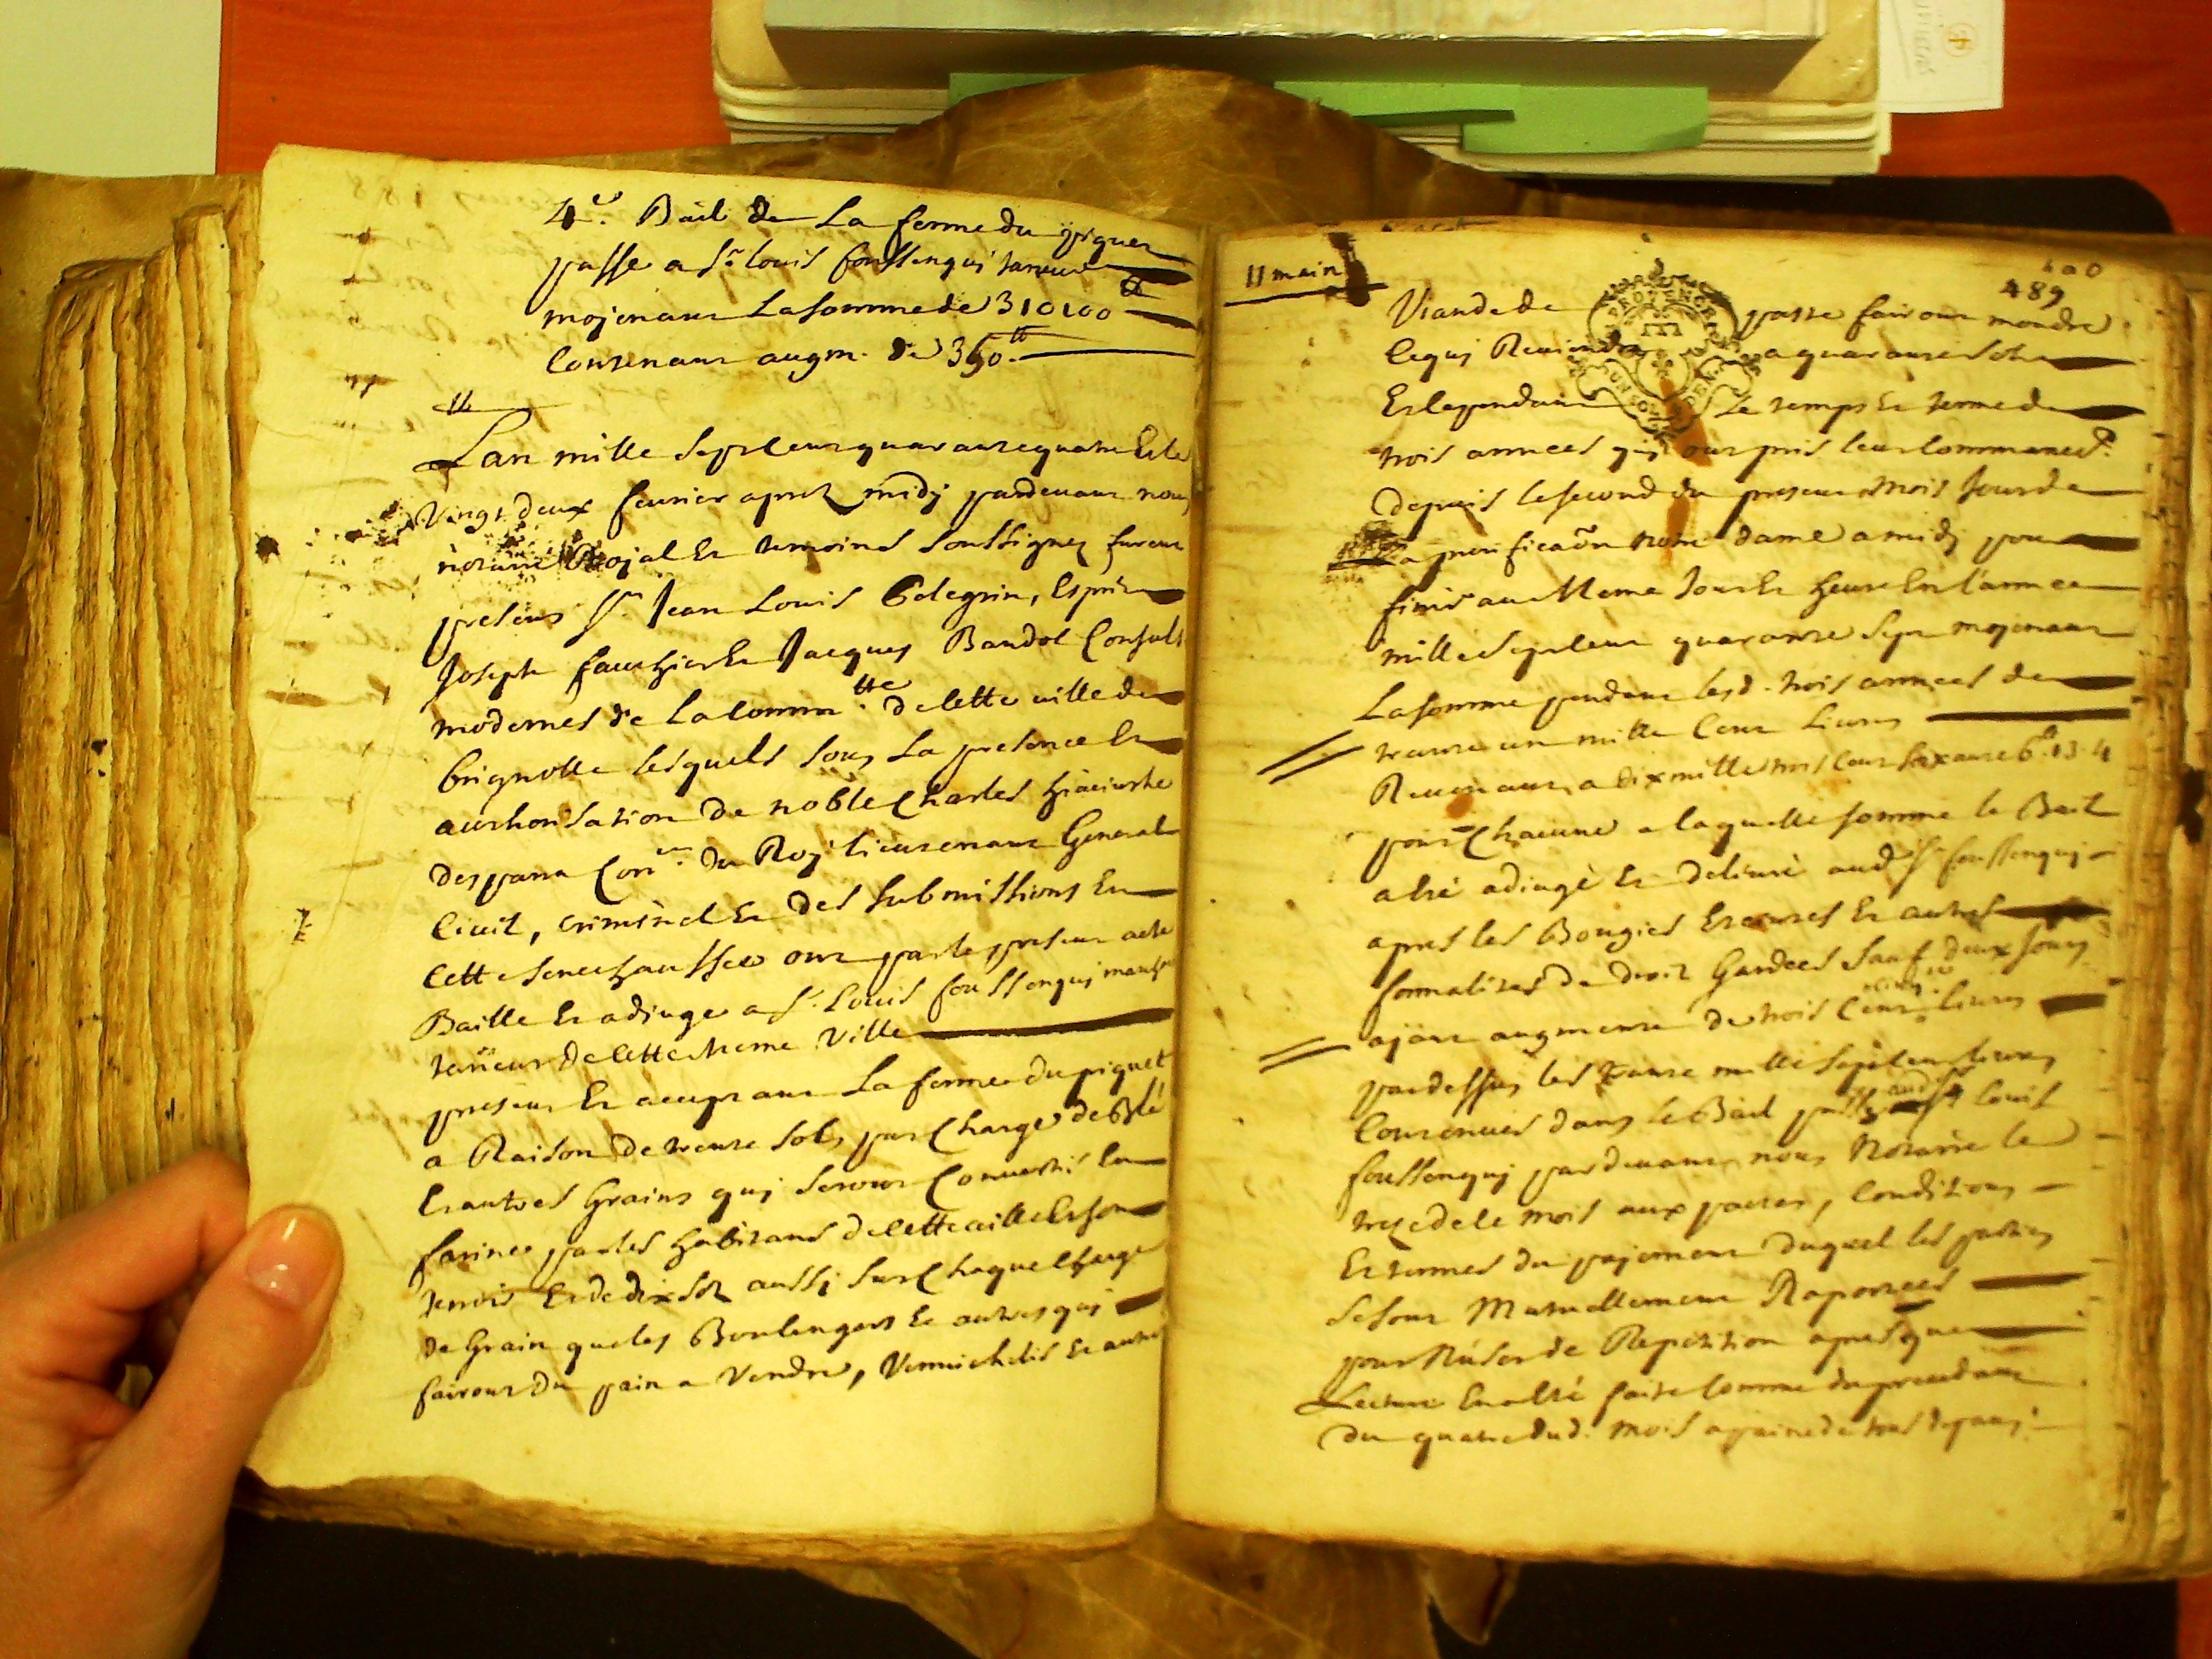 4e. Bail de La ferme du piquet
passe a Sr. louis foussenquj taneur
mojenant La somme de 310100 tt
Contenant augm. de 350. tt
Lan mille Sept cent quarante quatre Et le
Vingt deux feurier apres midj pardeuant nous
notaire Rojal Et temoins Soussignez furent
presens Sr. Jean Louis Pelegrin, Esprit
Joseph fauchier Et Jacques Bandol Consuls
modernes de La Comm.tte de Cette uille de
brignolle lesquels Sous La presence Et
authorisation de noble Charles hiacinthe
desparra Con.er du Roj lieutenant General
Ciuil, criminel Et des Submissions En
Cette Senechaussee ont par le present acte
Baillé Et adjugé a Sr. Louis foussenquj march
taneur de Cette meme Ville
present Et aceptant La ferme du piquet
a Raison de trente Sols par Charge de Blé
Et autres Grains quj Seront Conuertis En
farine par les habitans de Cette uille Et son
terroir Et de dix Sols aussj Sur Chaque Charge
de Grain que les Boulengers Et autres quj
fairont du pain a Vendre, Vermichelis Et autre
11 main
489
PROVENCE
UN SOL DEN.
Viande de passe fairont moudre
Ce quj Reuiendra a quarante Sols
Et Ce pendant Le temps Et terme de
trois années quj ont pris leur Commancet
depuis le second du present mois Jour de
La purification notre dame a midj pour
finir au Meme Jour Et heure En l'année
mille Sept cent quarante Sept mojenant
La somme pendant lesd. trois années de
trente un mille Cent Liures
Reuenant a dix mille trois Cent soixante 6 tt 13. 4
pour Chacune a laquelle somme le Bail
a été adiugé Et deliuré aud. Sr. foussenquj
apres les Bougies Eteintes Et autres
formalités de droit Gardées Sauf deux Jours
ajant augmenté de trois Cent cinq.te liures
pardessus les trente mille Sept cent liures
Contenues dans le Bail passé aud. Sr. louis
foussenquj pardeuant nous Notaire le
treze de Ce mois aux pactes, Conditions
Et termes du pajement duquel les parties
Se sont Mutuellement Raportées
pour N'user de Repetition apres que
Lecture En a été faite Comme du precedant
du quatre dud. mois a paine de tous depans